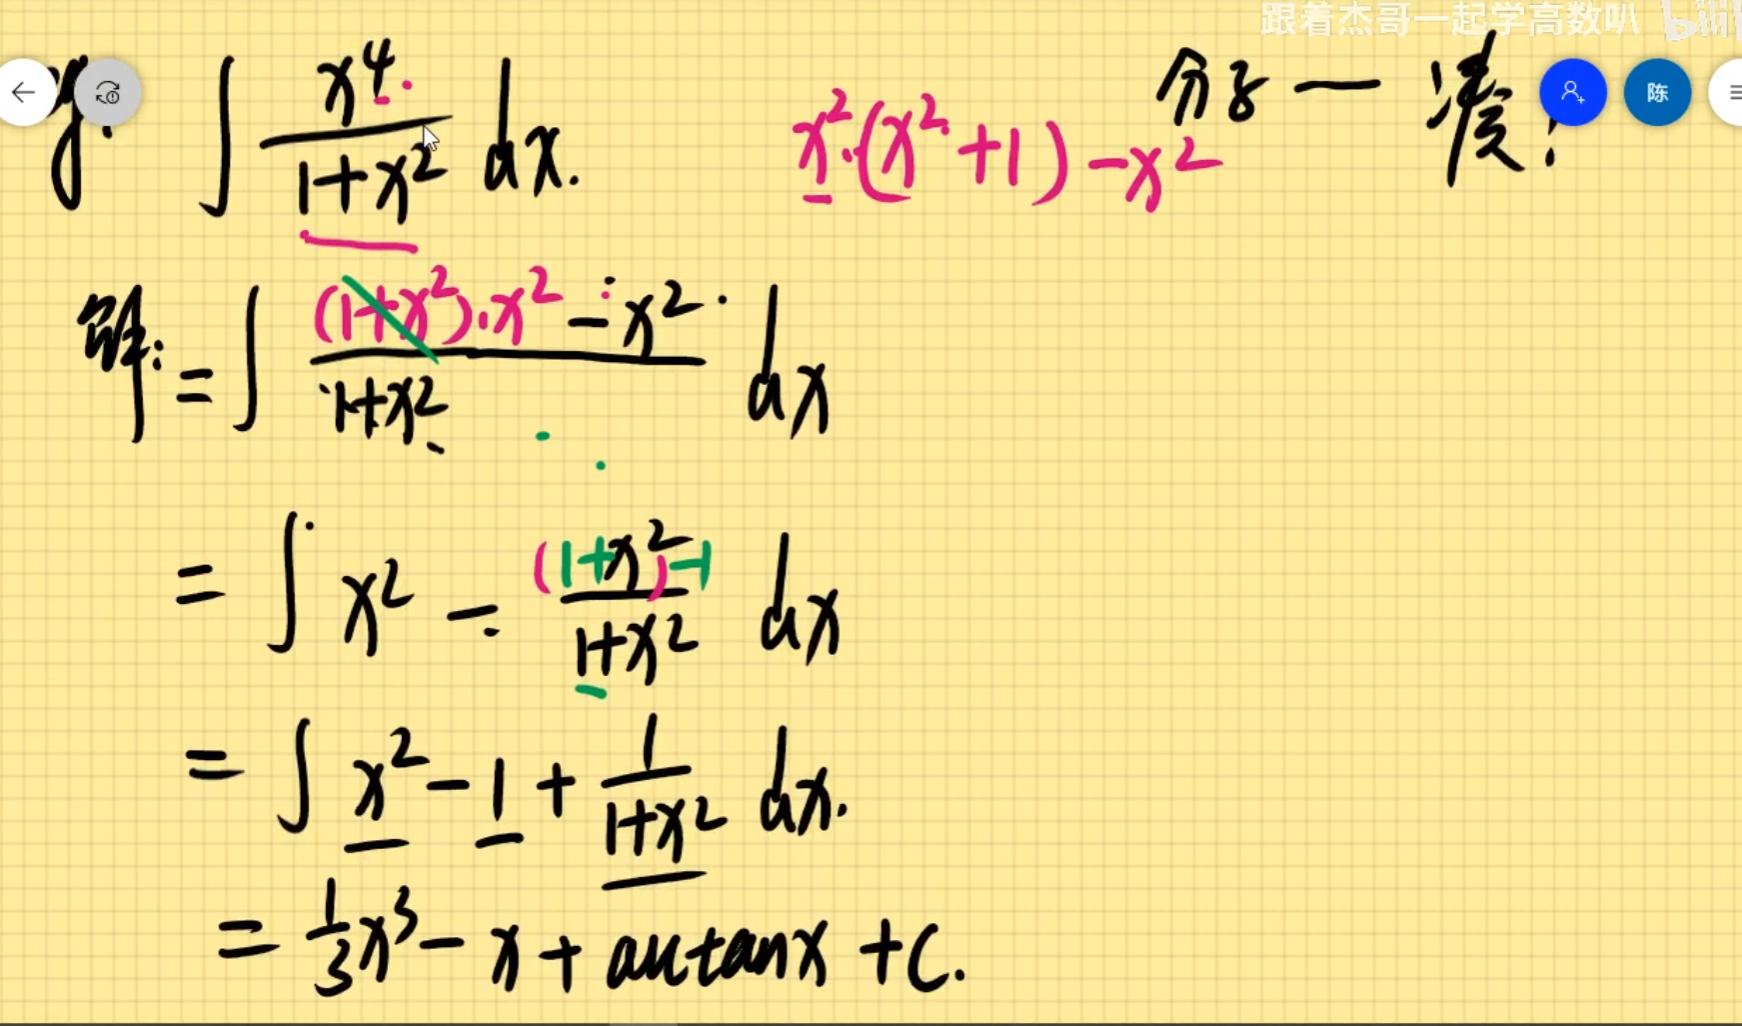 跟着杰哥一起学高数叭 bili
例: ∫ x⁴/(1+x²) dx. x²·(x²+1)-x² 分子一凑!
陈
解: = ∫ ((1+x²)·x²-x²)/(1+x²) dx
= ∫ x² - ((1+x²)-1)/(1+x²) dx
= ∫ x²-1+1/(1+x²) dx.
= 1/3 x³-x+arctanx+C.